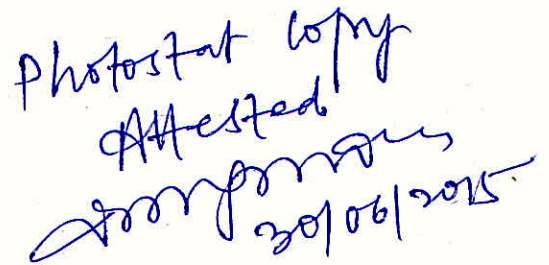 Photostat copy
Attested
30/06/2015.